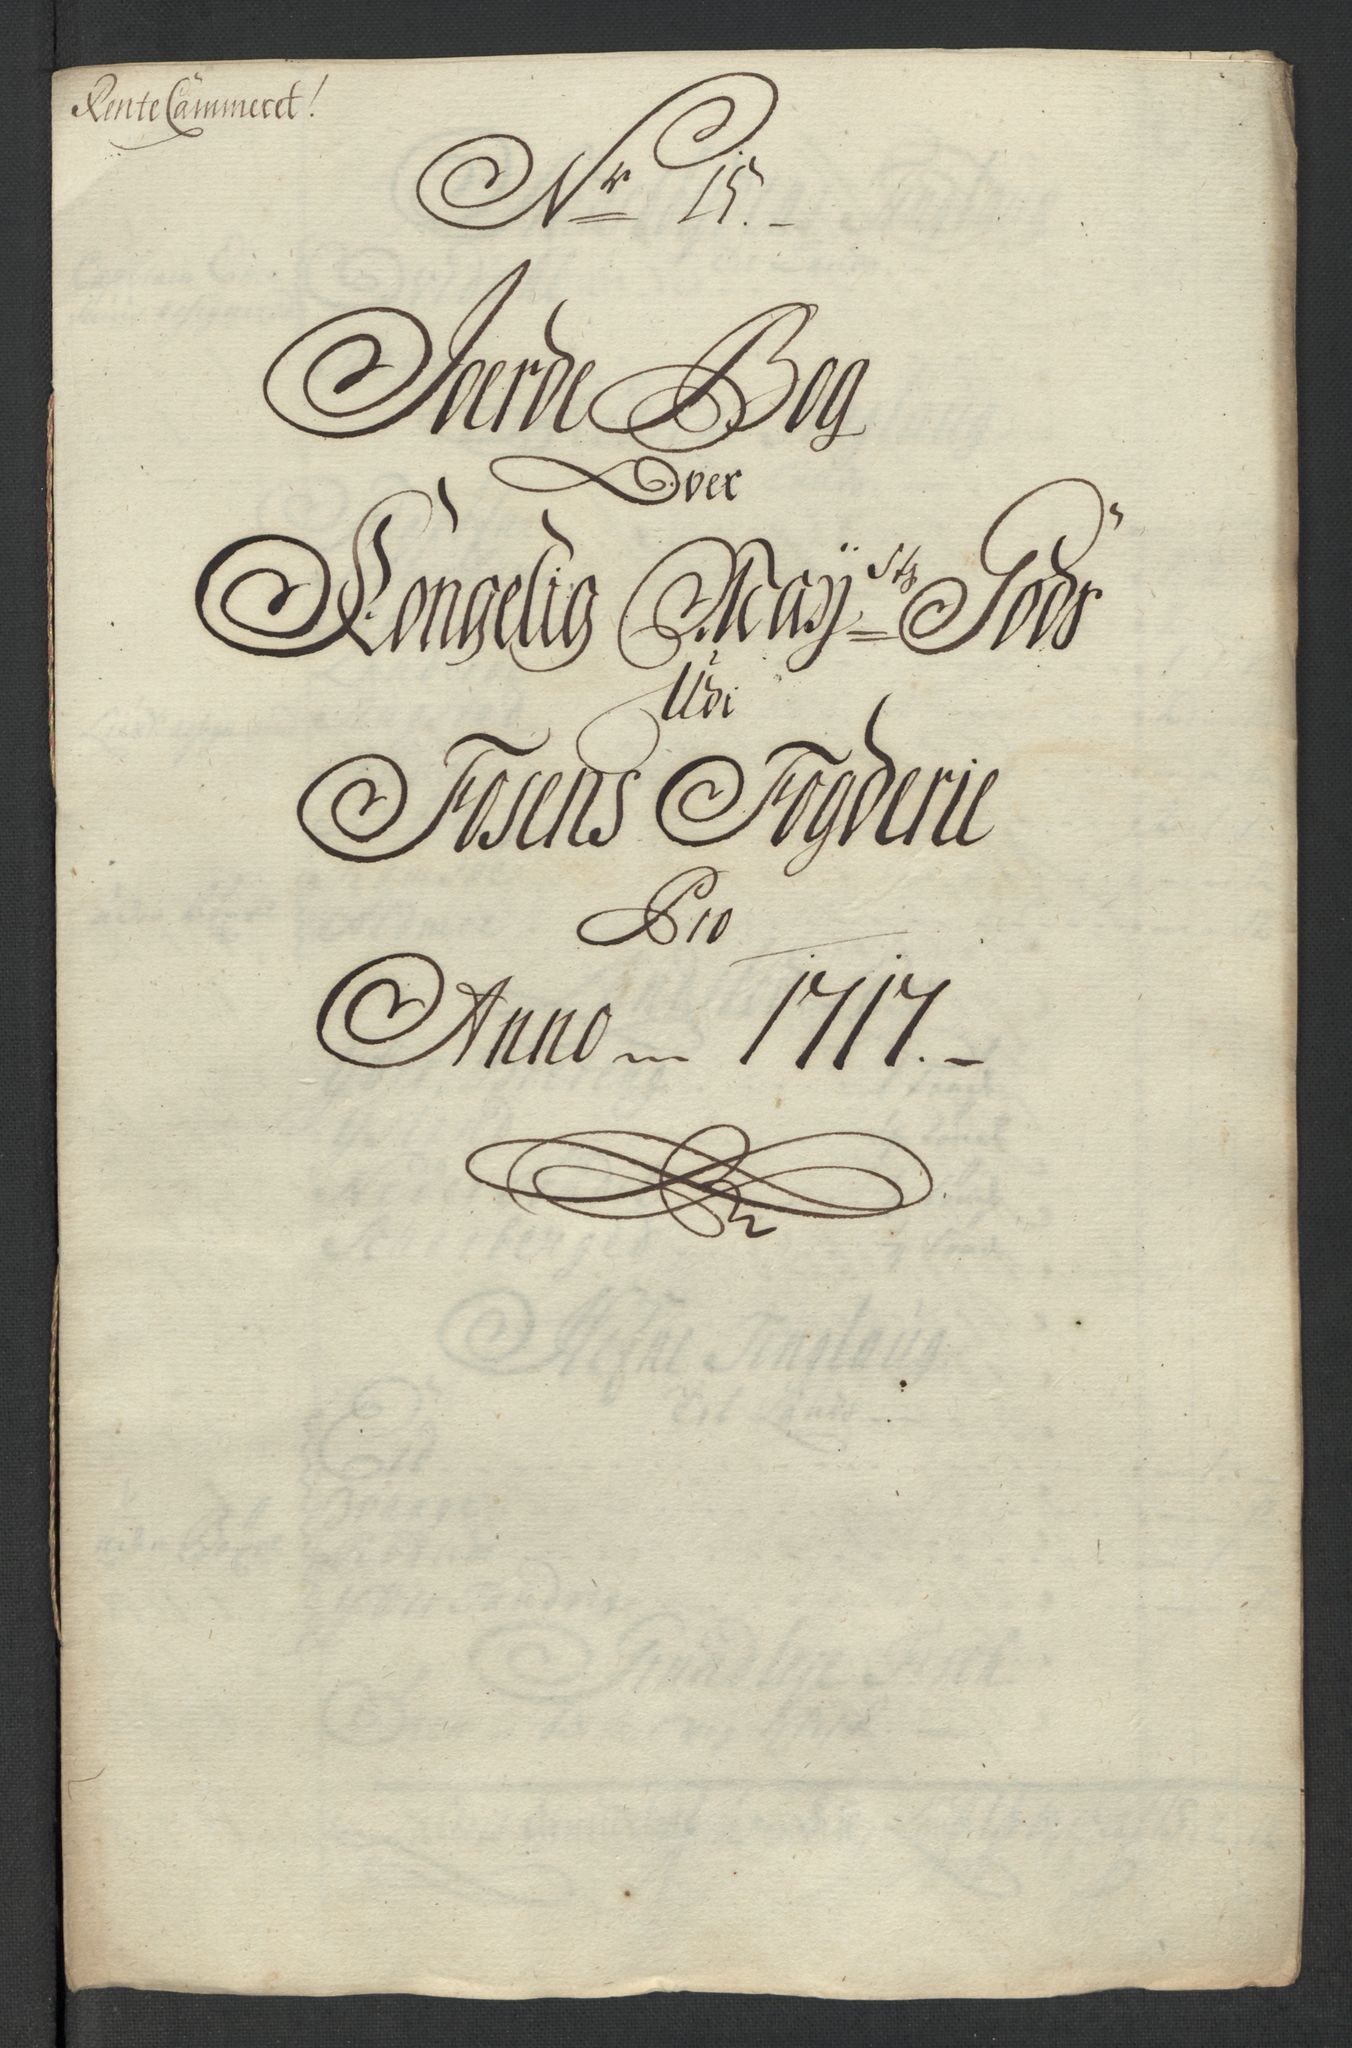 Rente Cammeret!
Nr 15.
Joerde Bog
Over
Kongelig Mayˢᵗˢ Gods
Udi
Fosens Fogderie
Pro
Anno 1717.